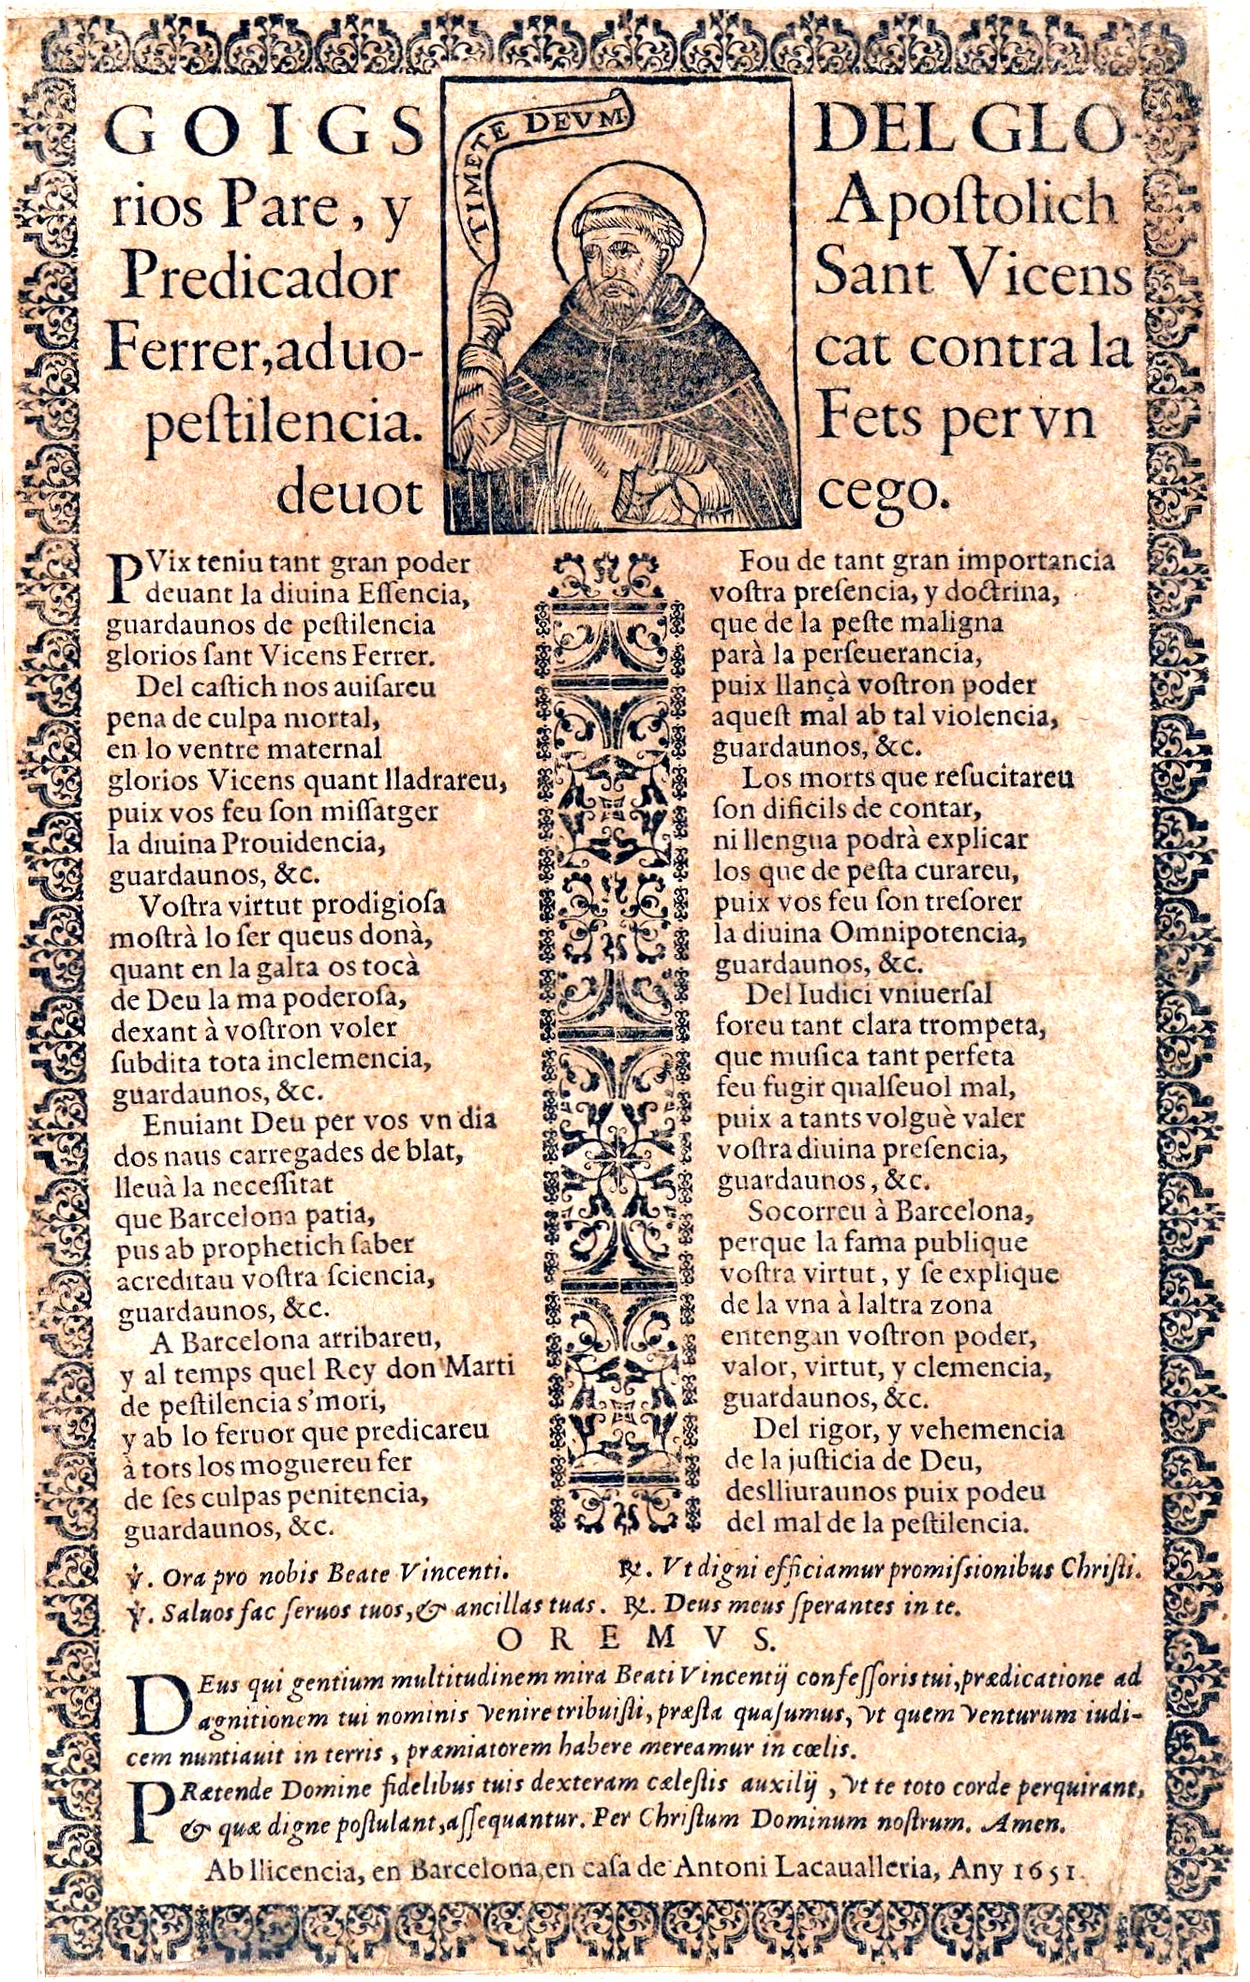 TIMETE DEVM
GOIGS DEL GLO
rios Pare, y Apoſtolich
Predicador Sant Vicens
Ferrer, aduo- cat contra la
peſtilencia. Fets per vn
deuot cego.
PVix teniu tant gran poder
deuant la diuina Eſſencia,
guardaunos de peſtilencia
glorios ſant Vicens Ferrer.
Del caſtich nos auiſareu
pena de culpa mortal,
en lo ventre maternal
glorios Vicens quant lladrareu,
puix vos feu ſon miſſatger
la diuina Prouidencia,
guardaunos, &c.
Voſtra virtut prodigioſa
moſtrà lo ſer queus donà,
quant en la galta os tocà
de Deu la ma poderoſa,
dexant à voſtron voler
ſubdita tota inclemencia,
guardaunos, &c.
Enuiant Deu per vos vn dia
dos naus carregades de blat,
lleuà la neceſſitat
que Barcelona patia,
pus ab prophetich ſaber
acreditau voſtra ſciencia,
guardaunos, &c.
A Barcelona arribareu,
y al temps quel Rey don Marti
de peſtilencia s'mori,
y ab lo feruor que predicareu
à tots los moguereu fer
de ſes culpas penitencia,
guardaunos, &c.
Fou de tant gran importancia
voſtra preſencia, y doctrina,
que de la peſte maligna
parà la perſeuerancia,
puix llançà voſtron poder
aqueſt mal ab tal violencia,
guardaunos, &c.
Los morts que reſucitareu
ſon dificils de contar,
ni llengua podrà explicar
los que de peſta curareu,
puix vos feu ſon treſorer
la diuina Omnipotencia,
guardaunos, &c.
Del Iudici vniuerſal
foreu tant clara trompeta,
que muſica tant perfeta
feu fugir qualſeuol mal,
puix a tants volguè valer
voſtra diuina preſencia,
guardaunos, &c.
Socorreu à Barcelona,
perque la fama publique
voſtra virtut, y ſe explique
de la vna à laltra zona
entengan voſtron poder,
valor, virtut, y clemencia,
guardaunos, &c.
Del rigor, y vehemencia
de la juſticia de Deu,
deslliuraunos puix podeu
del mal de la peſtilencia.
℣. Ora pro nobis Beate Vincenti. ℟. Vt digni efficiamur promiſsionibus Chriſti.
℣. Saluos fac ſeruos tuos, & ancillas tuas. ℟. Deus meus ſperantes in te.
OREMVS.
DEus qui gentium multitudinem mira Beati Vincentij confeſſoris tui, prædicatione ad
agnitionem tui nominis venire tribuiſti, præſta quaſumus, vt quem venturum iudi-
cem nuntiauit in terris, præmiatorem habere mereamur in cœlis.
PRætende Domine fidelibus tuis dexteram cæleſtis auxilij, vt te toto corde perquirant,
& quæ digne poſtulant, aſſequantur. Per Chriſtum Dominum noſtrum. Amen.
Ab llicencia, en Barcelona, en caſa de Antoni Lacaualleria, Any 1651.